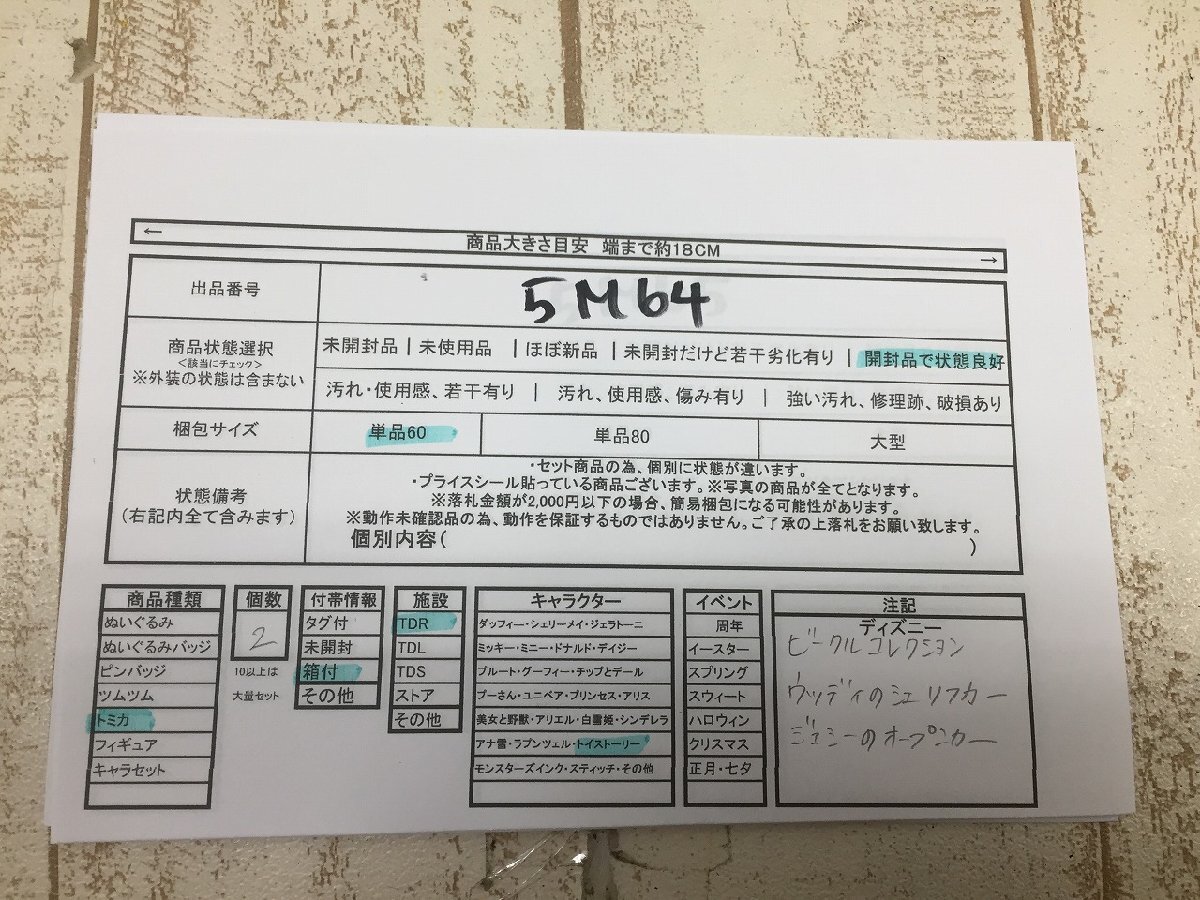 ← 商品大きさ目安 端まで約18CM →
出品番号 5M64
商品状態選択
<該当にチェック>
※外装の状態は含まない
未開封品 | 未使用品 | ほぼ新品 | 未開封だけど若干劣化有り | 開封品で状態良好
汚れ・使用感、若干有り | 汚れ、使用感、傷み有り | 強い汚れ、修理跡、破損あり
梱包サイズ 単品60 単品80 大型
状態備考
(右記内全て含みます)
・セット商品の為、個別に状態が違います。
・プライスシール貼っている商品ございます。※写真の商品が全てとなります。
※落札金額が2,000円以下の場合、簡易梱包になる可能性があります。
※動作未確認品の為、動作を保証するものではありません。ご了承の上落札をお願い致します。
個別内容( )
商品種類
ぬいぐるみ
ぬいぐるみバッジ
ピンバッジ
ツムツム
トミカ
フィギュア
キャラセット
個数
2
10以上は
大量セット
付帯情報
タグ付
未開封
箱付
その他
施設
TDR
TDL
TDS
ストア
その他
キャラクター
ダッフィー・シェリーメイ・ジェラトーニ
ミッキー・ミニー・ドナルド・デイジー
プルート・グーフィー・チップとデール
プーさん・ユニベア・プリンセス・アリス
美女と野獣・アリエル・白雪姫・シンデレラ
アナ雪・ラプンツェル・トイストーリー
モンスターズインク・スティッチ・その他
イベント
周年
イースター
スプリング
スウィート
ハロウィン
クリスマス
正月・七夕
注記
ディズニー
ビークルコレクション
ウッディのシェリフカー
ジェシーのオープンカー